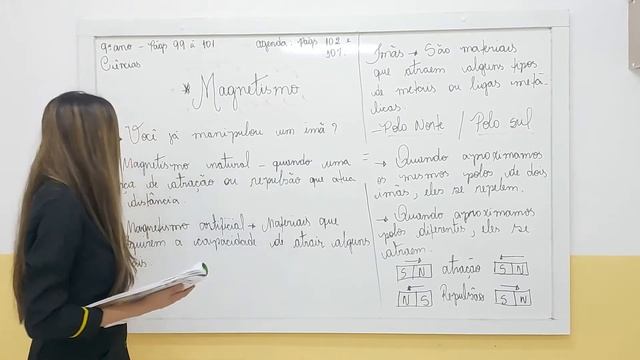 9º ano - Págs 99 à 101
agenda: págs 102 e
107.
Ciências
* Magnetismo
Você já manipulou um imã?
Magnetismo natural - quando uma
ça de atração ou repulsão que atua
distância.
Magnetismo artificial → Materiais que
quirem a capacidade de atrair alguns
ais.
Imãs → São materiais
que atraem alguns tipos
de metais ou ligas metá-
licas.
- Polo Norte / Polo Sul
→ Quando aproximamos
os mesmos polos, de dois
imãs, eles se repelem.
→ Quando aproximamos
polos diferentes, eles se
atraem.
S N atração S N
N S Repulsão S N